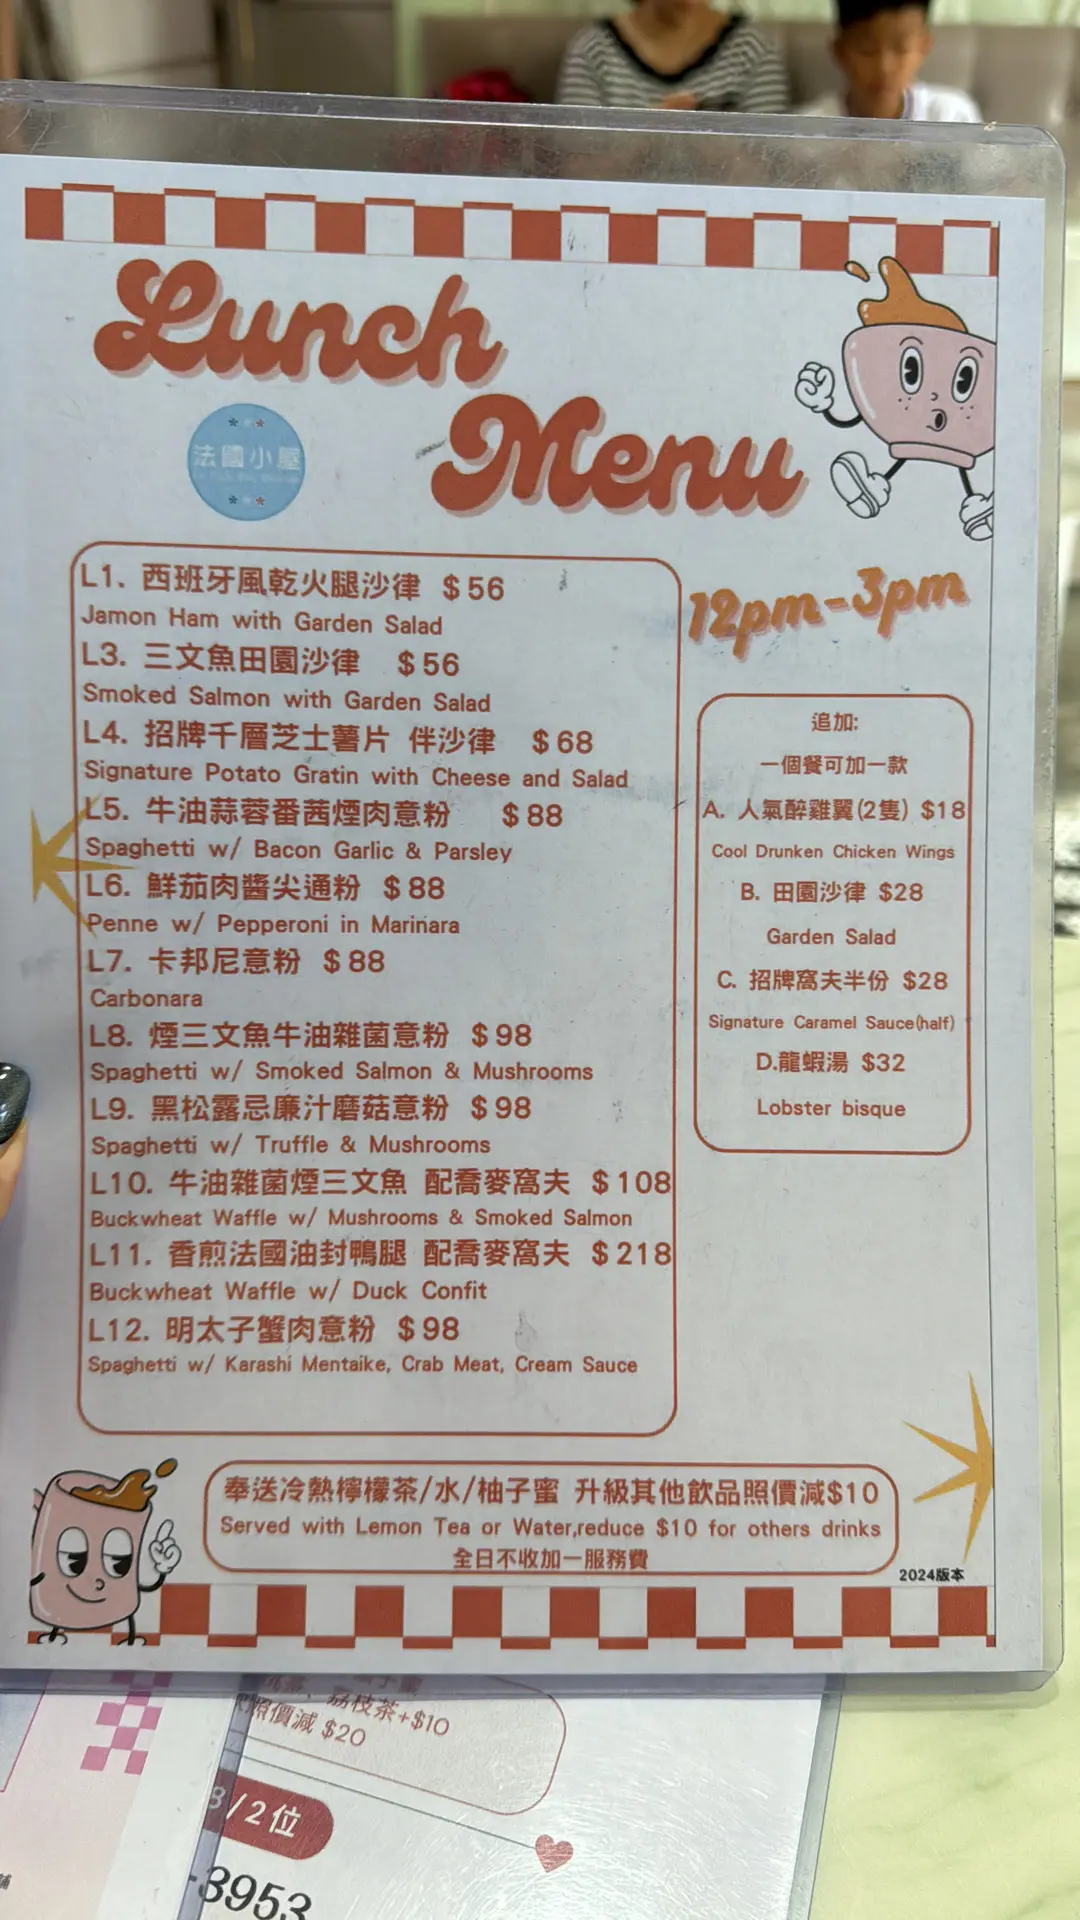 Lunch
Menu
法國小屋
12pm-3pm
L1. 西班牙風乾火腿沙律 $56
Jamon Ham with Garden Salad
L3. 三文魚田園沙律 $56
Smoked Salmon with Garden Salad
L4. 招牌千層芝士薯片 伴沙律 $68
Signature Potato Gratin with Cheese and Salad
L5. 牛油蒜蓉番茜煙肉意粉 $88
Spaghetti w/ Bacon Garlic & Parsley
L6. 鮮茄肉醬尖通粉 $88
Penne w/ Pepperoni in Marinara
L7. 卡邦尼意粉 $88
Carbonara
L8. 煙三文魚牛油雜菌意粉 $98
Spaghetti w/ Smoked Salmon & Mushrooms
L9. 黑松露忌廉汁磨菇意粉 $98
Spaghetti w/ Truffle & Mushrooms
L10. 牛油雜菌煙三文魚 配喬麥窩夫 $108
Buckwheat Waffle w/ Mushrooms & Smoked Salmon
L11. 香煎法國油封鴨腿 配喬麥窩夫 $218
Buckwheat Waffle w/ Duck Confit
L12. 明太子蟹肉意粉 $98
Spaghetti w/ Karashi Mentaike, Crab Meat, Cream Sauce
追加:
一個餐可加一款
A. 人氣醉雞翼(2隻) $18
Cool Drunken Chicken Wings
B. 田園沙律 $28
Garden Salad
C. 招牌窩夫半份 $28
Signature Caramel Sauce(half)
D.龍蝦湯 $32
Lobster bisque
奉送冷熱檸檬茶/水/柚子蜜 升級其他飲品照價減$10
Served with Lemon Tea or Water,reduce $10 for others drinks
全日不收加一服務費
2024版本
荔枝茶+$10
照價減 $20
/2位
3953